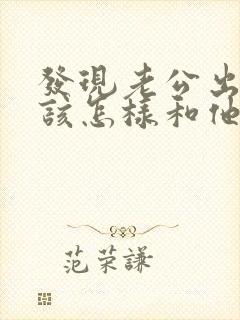 發現老公出
該怎樣和他
范荣謙